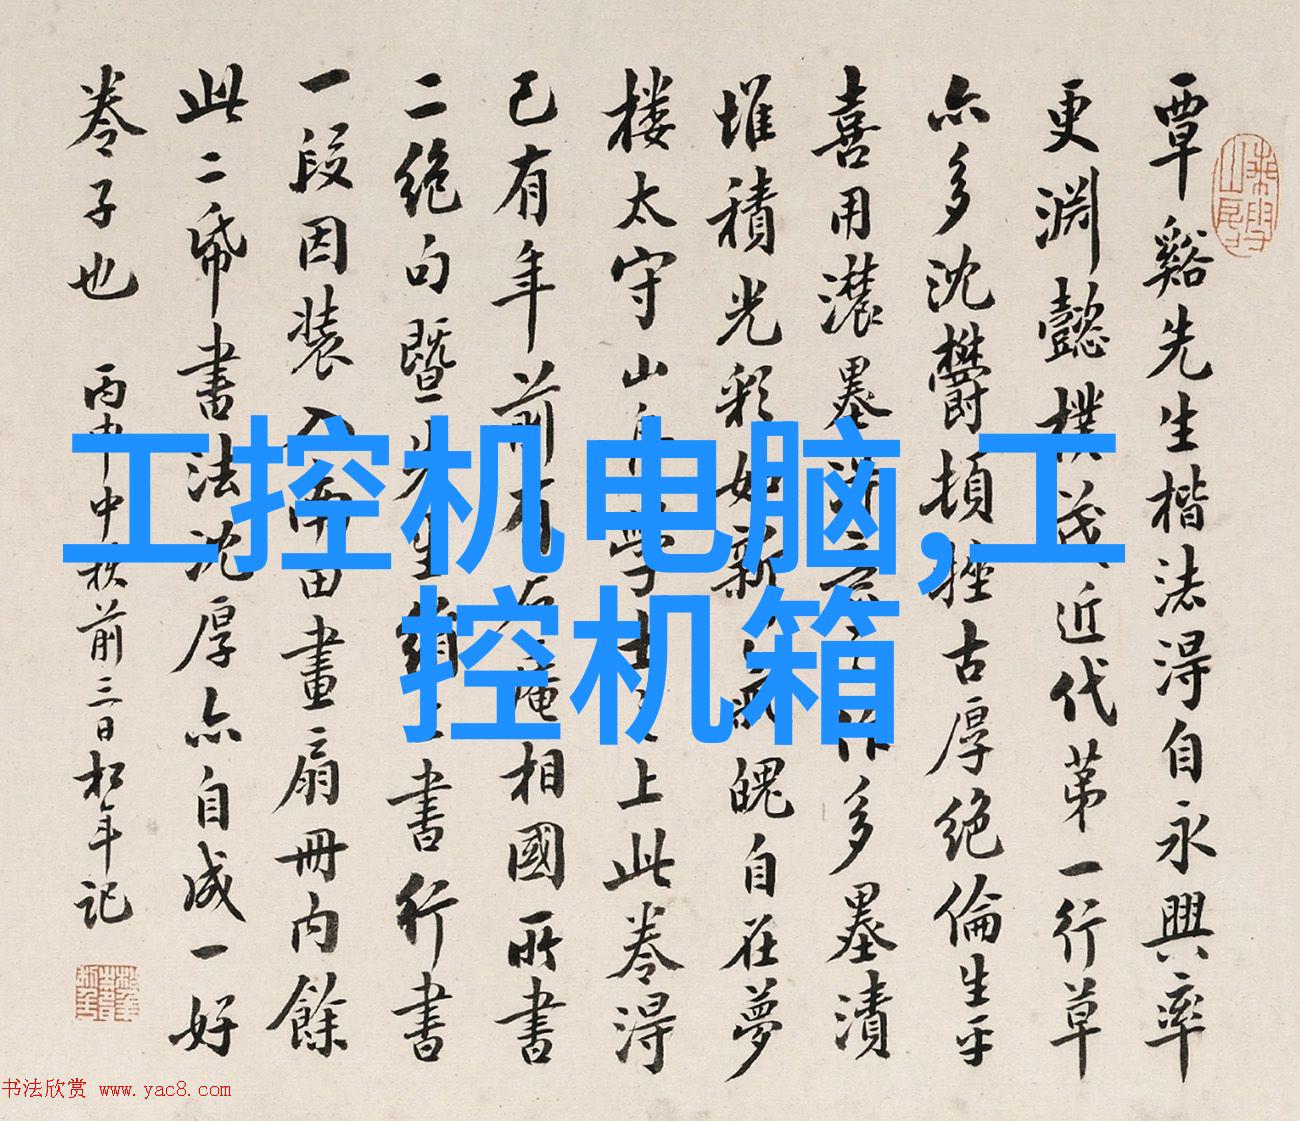 覃谿先生楷法得自永興率
更淵懿樸茂近代第一行草
亦多沈欝頓挫古厚絶倫生平
喜用濃墨
作多墨漬
堆積光彩如新
魄自在夢
樓太守山
學士
上此卷得
已有年前有
庵相國所書
二絶句暨先生
書行書
一段因裝入
南田畫扇冊内餘
此二帋書法沈厚亦自成一好
卷子也
丙申中秋前三日松年記
工控机电脑,工
控机箱
书法欣赏 www.yac8.com